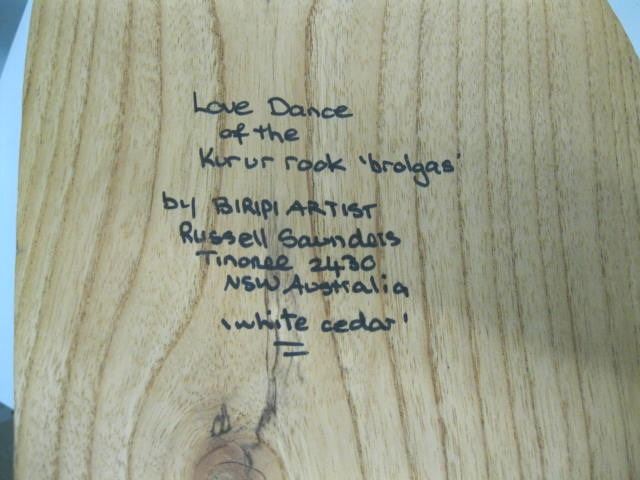 Love Dance
of the
Kurur rook 'brolgas'
by BIRIPI ARTIST
Russell Saunders
Tinonee 2430
NSW Australia
'white cedar'